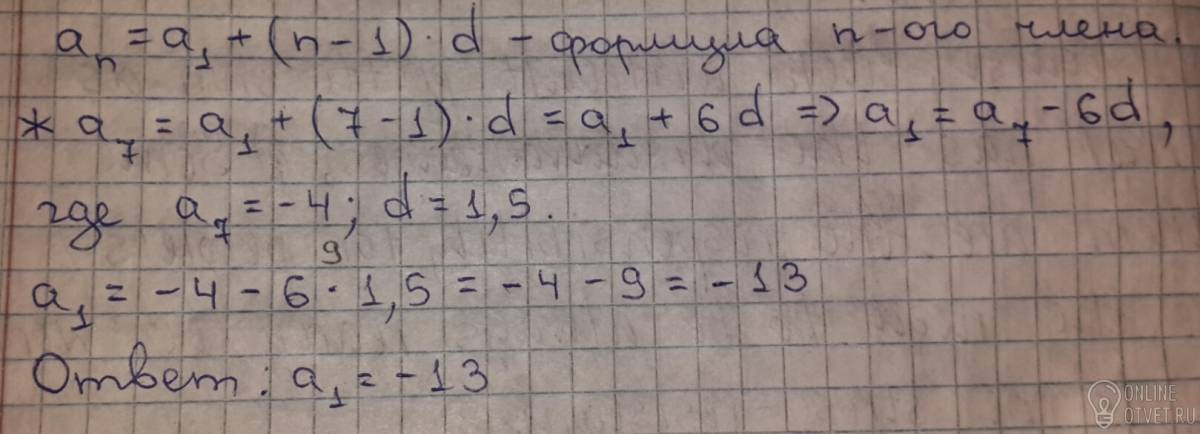 aₙ = a₁ + (n - 1) · d - формула n-ого члена.
* a₇ = a₁ + (7 - 1) · d = a₁ + 6d => a₁ = a₇ - 6d,
где a₇ = -4; d = 1,5.
9
a₁ = -4 - 6 · 1,5 = -4 - 9 = -13
Ответ: a₁ = -13
ONLINE
OTVET.RU